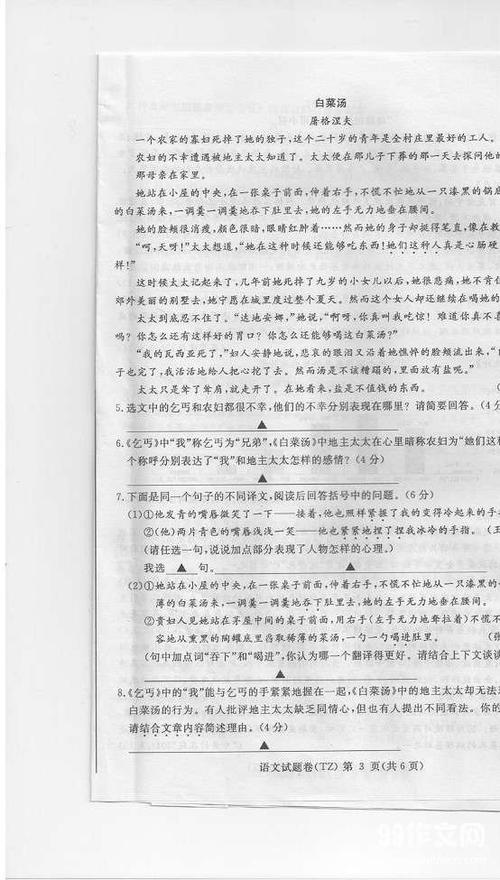 白菜汤
屠格涅夫
一个农家的寡妇死掉了她的独子，这个二十岁的青年是全村庄里最好的工人。
农妇的不幸遭遇被地主太太知道了。太太便在那儿子下葬的那一天去探问他的
那母亲在家里。
她站在小屋的中央，在一张桌子前面，伸着右手，不慌不忙地从一只漆黑的锅底
的白菜汤来，一调羹一调羹地吞下肚里去，她的左手无力地垂在腰间。
她的脸颊很消瘦，颜色很暗，眼睛红肿着……然而她的身子却挺得笔直，像在教
“呵，天呀！”太太想道，“她在这种时候还能够吃东西！她们这种人真是心肠硬
样！”
这时候太太记起来了，几年前她死掉了九岁的小女儿以后，她很悲痛，她不肯住
郊外美丽的别墅去，她宁愿在城里度过整个夏天。然而这个女人却还继续在喝她的
太太到底忍不住了。“达地安娜，”她说，“啊呀，你真叫我吃惊！难道你真不喜
吗？你怎么还有这样好的胃口？你怎么还能够喝这白菜汤？”
“我的瓦西亚死了，”妇人安静地说，悲哀的眼泪又沿着她憔悴的脸颊流出来，“
子也完了，我活活地给人把心挖了去。然而汤是不该糟蹋的，里面放有盐呢。”
太太只是耸了耸肩，就走开了。在她看来，盐是不值钱的东西。（
5.选文中的乞丐和农妇都很不幸，他们的不幸分别表现在哪里？请简要回答。（4分
▲
6.《乞丐》中“我”称乞丐为“兄弟”，《白菜汤》中地主太太在心里暗称农妇为“她们这种
个称呼分别表达了“我”和地主太太怎样的感情？（4分）
▲
7.下面是同一个句子的不同译文，阅读后回答括号中的问题。（6分）
(1)①他发青的嘴唇微笑了一下——接着，他也照样紧握了我的变得冷起来的手
②（他）两片青色的嘴唇浅浅一笑——他也紧紧地捏了捏我冰冷的手指。（王
（请任选一句，说说加点部分表现了人物怎样的心理。）
我选 ▲ 句。 ▲
(2)①她站在小屋的中央，在一张桌子前面，伸着右手，不慌不忙地从一只漆黑的
薄的白菜汤来，一调羹一调羹地吞下肚里去，她的左手无力地垂在腰间。
②贵妇人见她站在茅屋中间的桌子前面，用右手（左手无力地牵拉着）不慌不
容地从熏黑的陶罐底里舀取稀薄的菜汤，一勺一勺喝进肚里。（张
（句中加点词“吞下”和“喝进”，你认为哪一个翻译得更好。请结合上下文谈谈
▲
8.《乞丐》中的“我”能与乞丐的手紧紧地握在一起，《白菜汤》中的地主太太却无法
白菜汤的行为。有人批评地主太太缺乏同情心，但也有人提出不同看法。你的
请结合文章内容简述理由。（4分）
▲
语文试题卷(TZ) 第 3 页(共6页)
99作文网